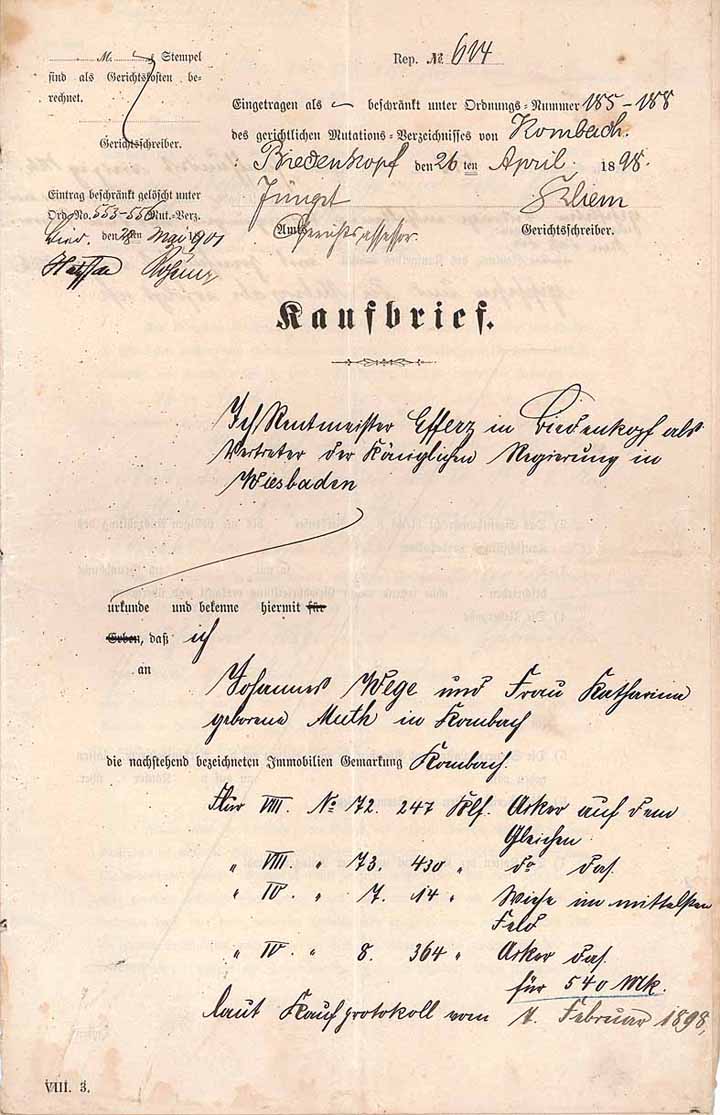 M. Stempel
sind als Gerichtskosten be-
rechnet.
Gerichtsschreiber.
Eintrag beschränkt gelöscht unter
Ord No. 553-556 Mut.-Verz.
Bied. den 28ten Mai 1901
Rep. № 614
Eingetragen als beschränkt unter Ordnungs-Nummer 185-188
des gerichtlichen Mutations-Verzeichnisses von Kombach.
Biedenkopf den 26ten April 1898.
Jüngst Kliem
Amts Gerichtsassessor. Gerichtsschreiber.
Kaufbrief.
Ich Rentmeister Efferz in Biedenkopf als
Vertreter der Königlichen Regierung in
Wiesbaden
urkunde und bekenne hiermit für
Erben, daß ich
an
Johannes Wege und Frau Katharina
geborene Muth in Kombach
die nachstehend bezeichneten Immobilien Gemarkung Kombach.
Flur VIII. No 72. 247 Klf. Acker auf dem
Gleichen
" VIII. " 73. 430 " do das.
" IV " 7. 14 " Wiese im mittelsten
Feld
" IV " 8. 364 " Acker das.
für 540 Mk.
laut Kaufprotokoll vom 7. Februar 1898,
VIII. 3.